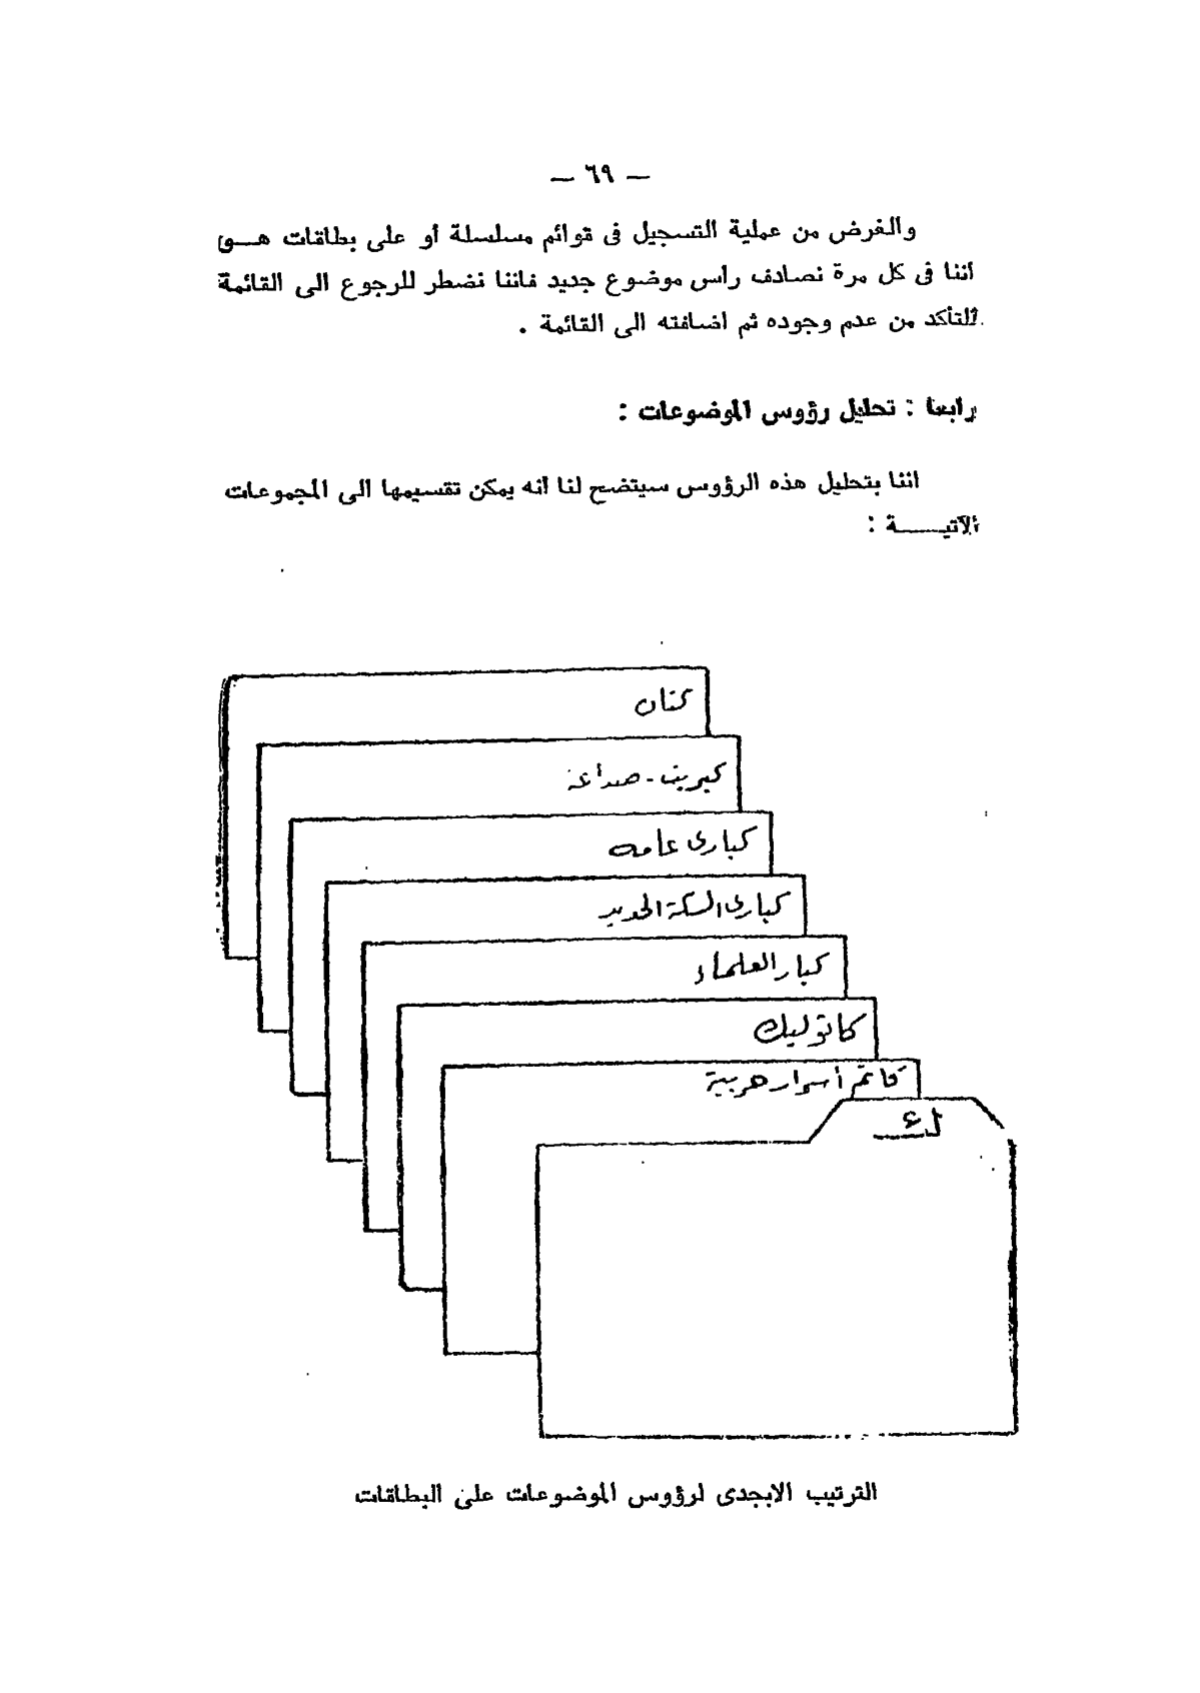 — ٦٩ —
والغرض من عملية التسجيل فى قوائم مسلسلة أو على بطاقات هــو
أننا فى كل مرة نصادف رأس موضوع جديد فاننا نضطر للرجوع الى القائمة
للتأكد من عدم وجوده ثم اضافته الى القائمة .
رابعا : تحليل رؤوس الموضوعات :
اننا بتحليل هذه الرؤوس سيتضح لنا أنه يمكن تقسيمها الى المجموعات
الآتيــــة :
كتان
كبريت - صناعة
كبارى عامه
كبارى السكة الحديد
كبار العلماء
كاثوليك
كاتم أسرار حربية
ك
الترتيب الابجدى لرؤوس الموضوعات على البطاقات